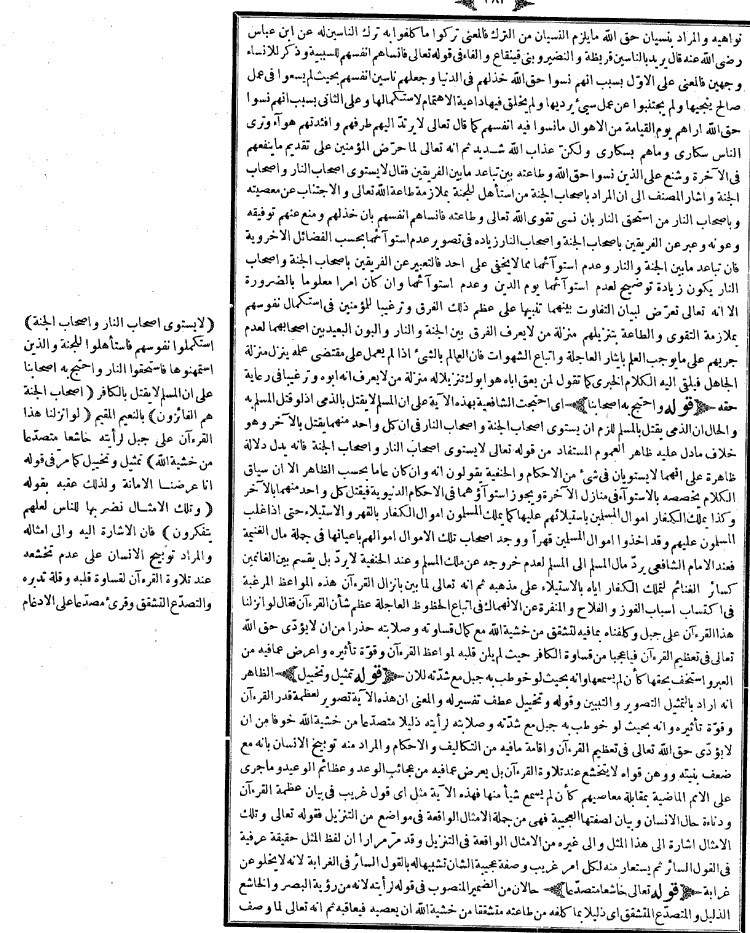 ٢٨٢
نواهيه والمراد بنسيان حق الله مايلزم النسيان من الترك فالمعنى تركوا ما كلفوا به ترك الناسين له عن ابن عباس
رضى الله عنه قال يريد بالناسين قريظة والنضير وبنى قينقاع والفاء فى قوله تعالى فانساهم انفسهم للسببية وذكر للانساء
وجهين فالمعنى على الاوّل بسبب انهم نسوا حق الله خذلهم فى الدنيا وجعلهم ناسين انفسهم بحيث لم يسعوا فى عمل
صالح ينجيها ولم يجتنبوا عن عمل سيئ يرديها ولم يخلق فيها داعية الاهتمام لاستكمالها وعلى الثانى بسبب انهم نسوا
حق الله اراهم يوم القيامة من الاهوال مانسوا فيه انفسهم كما قال تعالى لا يرتدّ اليهم طرفهم وافئدتهم هوآء وترى
الناس سكارى وماهم بسكارى ولكنّ عذاب الله شديد ثم انه تعالى لما حرّض المؤمنين على تقديم ماينفعهم
فى الآخرة وشنع على الذين نسوا حق الله وطاعته بين تباعد مابين الفريقين فقال لا يستوى اصحاب النار واصحاب
الجنة واشار المصنف الى ان المراد باصحاب الجنة من استأهل للجنة بملازمة طاعة الله تعالى والاجتناب عن معصيته
وباصحاب النار من استحق النار بان نسى تقوى الله تعالى وطاعته فانساهم انفسهم بان خذلهم ومنع عنهم توفيقه
وعونه وعبر عن الفريقين باصحاب الجنة واصحاب النار زياده فى تصوير عدم استوآئهما بحسب الفضائل الاخروية
فان تباعد مابين الجنة والنار وعدم استوآئهما مما لايخفى على احد فالتعبير عن الفريقين باصحاب الجنة واصحاب
النار يكون زيادة توضيح لعدم استوآئهما يوم الدين وعدم استوآئهما وان كان امرا معلوما بالضرورة
الا انه تعالى تعرّض لبيان التفاوت بينهما تنبيها على عظم ذلك الفرق وترغيبا للمؤمنين فى استكمال نفوسهم
بملازمة التقوى والطاعة بتنزيلهم منزلة من لايعرف الفرق بين الجنة والنار والبون البعيد بين اصحابهما لعدم
جريهم على مايوجب العلم بايثار العاجلة واتباع الشهوات فان العالم بالشئ اذا لم يعمل على مقتضى عمله ينزل منزلة
الجاهل فيلقى اليه الكلام الخبرى كما تقول لمن يعق اباه هو ابوك تنزيلا له منزلة من لايعرف انه ابوه وترغيبا فى رعاية
حقه ﴿قوله واحتج به اصحابنا﴾ اى احتجت الشافعية بهذه الآية على ان المسلم لايقتل بالذمى اذلو قتل المسلم به
والحال ان الذمى يقتل بالمسلم للزم ان يستوى اصحاب الجنة واصحاب النار فى ان كل واحد منهما يقتل بالآخر وهو
خلاف مادل عليه ظاهر العموم المستفاد من قوله تعالى لا يستوى اصحاب النار واصحاب الجنة فانه يدل دلالة
ظاهرة على انهما لايستويان فى شئ من الاحكام والحنفية يقولون انه وان كان عاما بحسب الظاهر الا ان سياق
الكلام يخصصه بالاستوآء فى منازل الآخرة ويجوز استوآؤهما فى الاحكام الدنيوية فيقتل كل واحد منهما بالآخر
وكذا يملك الكفار اموال المسلمين باستيلائهم عليها كما يملك المسلمون اموال الكفار بالقهر والاستيلاء حتى اذا غلب
المسلمون عليهم وقد اخذوا اموال المسلمين قهرا ووجد اصحاب تلك الاموال اموالهم باعيانها فى جملة مال الغنيمة
فعند الامام الشافعى يردّ مال المسلم الى المسلم لعدم خروجه عن ملك المسلم وعند الحنفية لا يردّ بل يقسم بين الغانمين
كسائر الغنائم لتملك الكفار اياه بالاستيلاء على مذهبه ثم انه تعالى لما بين بانزال القرءآن هذه المواعظ المرغبة
فى اكتساب اسباب الفوز والفلاح والمنفرة عن الانهماك فى اتباع الحظوظ العاجلة عظم شأن القرءآن فقال لو انزلنا
هذا القرءآن على جبل وكلفناه بما فيه لتشقق من خشية الله مع كمال قساوته وصلابته حذرا من ان لايؤدّى حق الله
تعالى فى تعظيم القرءآن فيا عجبا من قساوة الكافر حيث لم يلن قلبه لمواعظ القرءآن وقوّة تأثيره واعرض عما فيه من
العبر واستخف بحقها كأن لم يسمعها وانه بحيث لو خوطب به جبل مع شدّته للان ﴿قوله تمثيل وتخييل﴾ الظاهر
انه اراد بالتمثيل التصوير والتبيين وقوله وتخييل عطف تفسير له والمعنى ان هذه الآية تصوير لعظمة قدر القرءآن
وقوّة تأثيره وانه بحيث لو خوطب به جبل مع شدّته وصلابته رأيته ذليلا متصدّعا من خشية الله خوفا من ان
لايؤدّى حق الله تعالى فى تعظيم القرءآن واقامة مافيه من التكاليف والاحكام والمراد منه توبيخ الانسان بانه مع
ضعف بنيته ووهن قواه لايتخشع عند تلاوة القرءآن بل يعرض عما فيه من عجائب الوعد وعظائم الوعيد وماجرى
على الامم الماضية بمقابلة معاصيهم كأن لم يسمع شيأ منها فهذه الآية مثل اى قول غريب فى بيان عظمة القرءآن
ودناءة حال الانسان وبيان لصفتها العجيبة فهى من جملة الامثال الواقعة فى مواضع من التنزيل فقوله تعالى وتلك
الامثال اشارة الى هذا المثل والى غيره من الامثال الواقعة فى التنزيل وقد مرّ مرارا ان لفظ المثل حقيقة عرفية
فى القول السائر ثم يستعار منه لكل امر غريب وصفة عجيبة الشان تشبيها له بالقول السائر فى الغرابة لانه لايخلو عن
غرابة ﴿قوله تعالى خاشعا متصدّعا﴾ حالان من الضمير المنصوب فى قوله رأيته لانه من رؤية البصر والخاشع
الذليل والمتصدّع المتشقق اى ذليلا بما كلفه من طاعته متشققا من خشية الله ان يعصيه فيعاقبه ثم انه تعالى لما وصف
(لا يستوى اصحاب النار واصحاب الجنة)
استكملوا نفوسهم فاستأهلوا للجنة والذين
استمهنوها فاستحقوا النار واحتج به اصحابنا
على ان المسلم لايقتل بالكافر (اصحاب الجنة
هم الفائزون) بالنعيم المقيم (لو انزلنا هذا
القرءآن على جبل لرأيته خاشعا متصدّعا
من خشية الله) تمثيل وتخييل كما مرّ فى قوله
انا عرضنا الامانة ولذلك عقبه بقوله
(وتلك الامثال نضربها للناس لعلهم
يتفكرون) فان الاشارة اليه والى امثاله
والمراد توبيخ الانسان على عدم تخشعه
عند تلاوة القرءآن لقساوة قلبه وقلة تدبره
والتصدّع التشقق وقرئ مصدّعا على الادغام